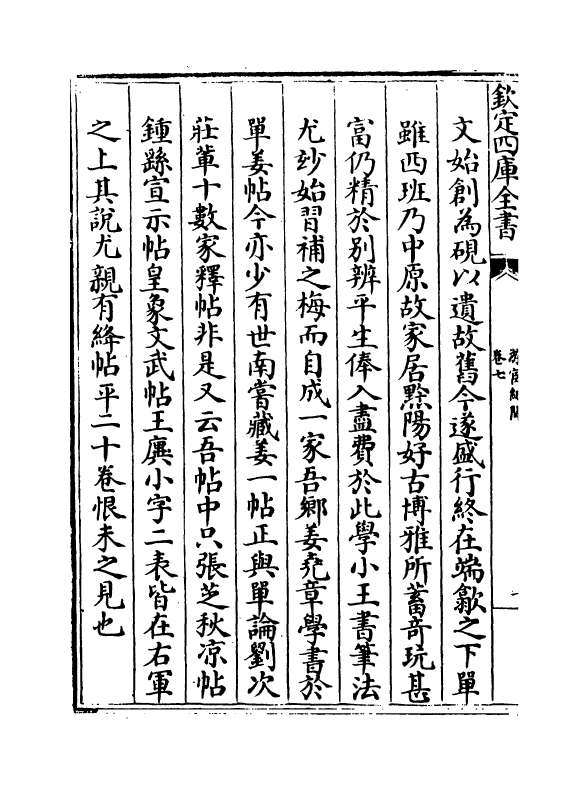 欽定四庫全書
游宦紀聞
卷七
文始創為硯以遺故舊今遂盛行終在端歙之下單
雖西班乃中原故家居黙陽好古博雅所蓄奇玩甚
富仍精於別辨平生俸入盡費於此學小王書筆法
尤玅始習補之梅而自成一家吾鄉姜堯章學書於
單姜帖今亦少有世南嘗藏姜一帖正與單論劉次
莊軰十數家釋帖非是又云吾帖中只張芝秋凉帖
鍾繇宣示帖皇象文武帖王廙小字二表皆在右軍
之上其說尤親有絳帖平二十卷恨未之見也